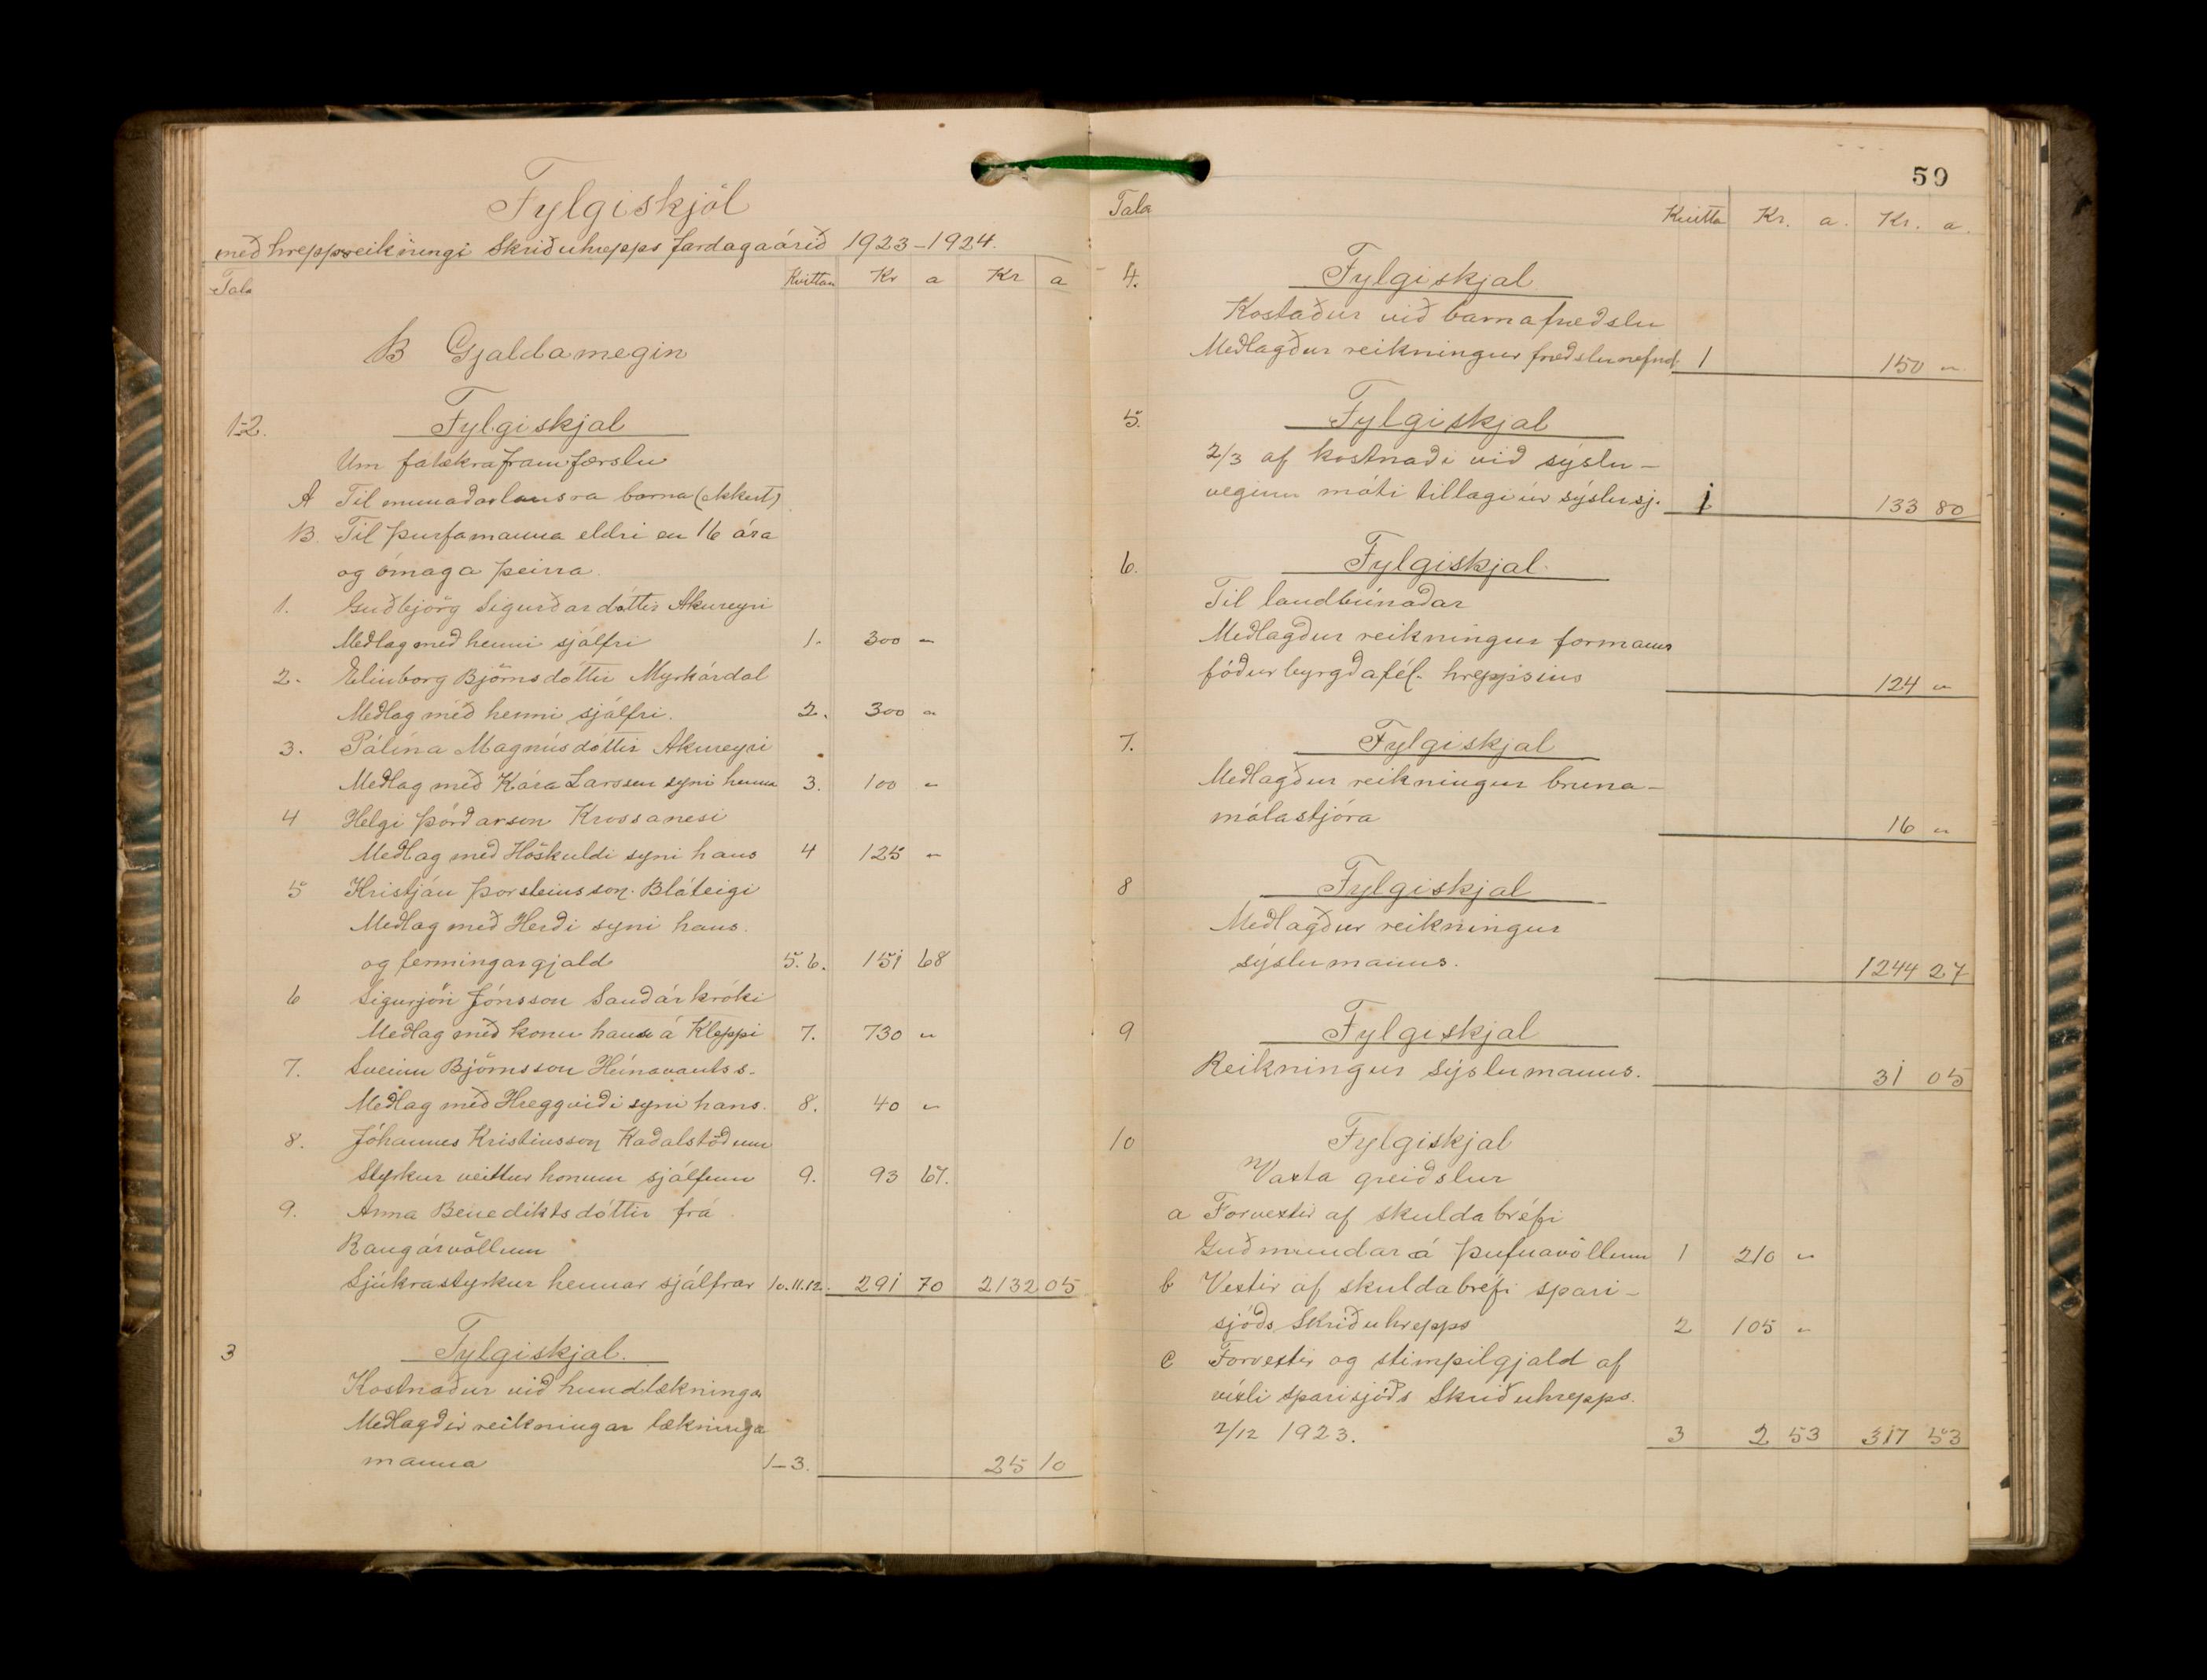 Fylgiskjöl
með hreppsreikningi Skriðuhrepps fardagaárið 1923-1924.
Tala Kvittan Kr a Kr a
B Gjaldamegin
1-2. Fylgiskjal
Um fátækraframfærslu
A Til munaðarlausra barna (ekkert)
B. Til þurfamanna eldri en 16 ára
og ómaga þeirra.
1. Guðbjörg Sigurðardóttir Akureyri
Meðlag með henni sjálfri 1. 300 "
2. Elinborg Björnsdóttir Myrkárdal
Meðlag með henni sjálfri. 2. 300 "
3. Pálína Magnúsdóttir Akureyri
Meðlag með Kára Larssen syni hennar 3. 100 "
4 Helgi Þórðarson Krossanesi
Meðlag með Höskuldi syni hans 4 125 "
5 Kristján Þorsteinsson. Bláteigi
Meðlag með Herði syni hans.
og fermingargjald 5.6. 151 68
6 Sigurjón Jónsson Sauðárkróki
Meðlag með konu hans á Kleppi 7. 730 "
7. Sveinn Björnsson Húnavants s.
Meðlag með Hreggviði syni hans. 8. 40 "
8. Jóhannes Kristinsson Kaðalstöðum
Styrkur veittur honum sjálfum 9. 93 67.
9. Anna Benediktsdóttir frá
Rangárvöllum
Sjúkrastyrkur hennar sjálfrar 10.11.12. 291 70 2132 05
3 Fylgiskjal.
Kostnaður við hundlækningar
Meðlagðir reikningar lækninga
manna 1-3. 25 10
59
Tala Kvitta Kr. a. Kr. a.
4. Fylgiskjal
Kostaður við barnafræðslu
Meðlagður reikningur fræðslunefnd. 1 150 "
5. Fylgiskjal
2/3 af kostnaði við sýslu-
veginn móti tillagi úr sýslusj. 1 133 80
6. Fylgiskjal.
Til landbúnaðar
Meðlagður reikningur formanns
fóðurbyrgðafél. hreppsins 124 "
7. Fylgiskjal
Meðlagður reikningur bruna-
málastjóra 16 "
8 Fylgiskjal
Meðlagður reikningur
sýslumanns. 1244 27
9 Fylgiskjal
Reikningur sýslumanns. 31 05
10 Fylgiskjal
Vaxta greiðslur
a Forvextir af skuldabréfi
Guðmundar á Þúfnavöllum 1 210 "
b Vextir af skuldabréfi spari-
sjóðs Skriðuhrepps 2 105 "
c Forvextir og stimpilgjald af
víxli sparisjóðs Skriðuhrepps.
2/12 1923. 3 2 53 317 53